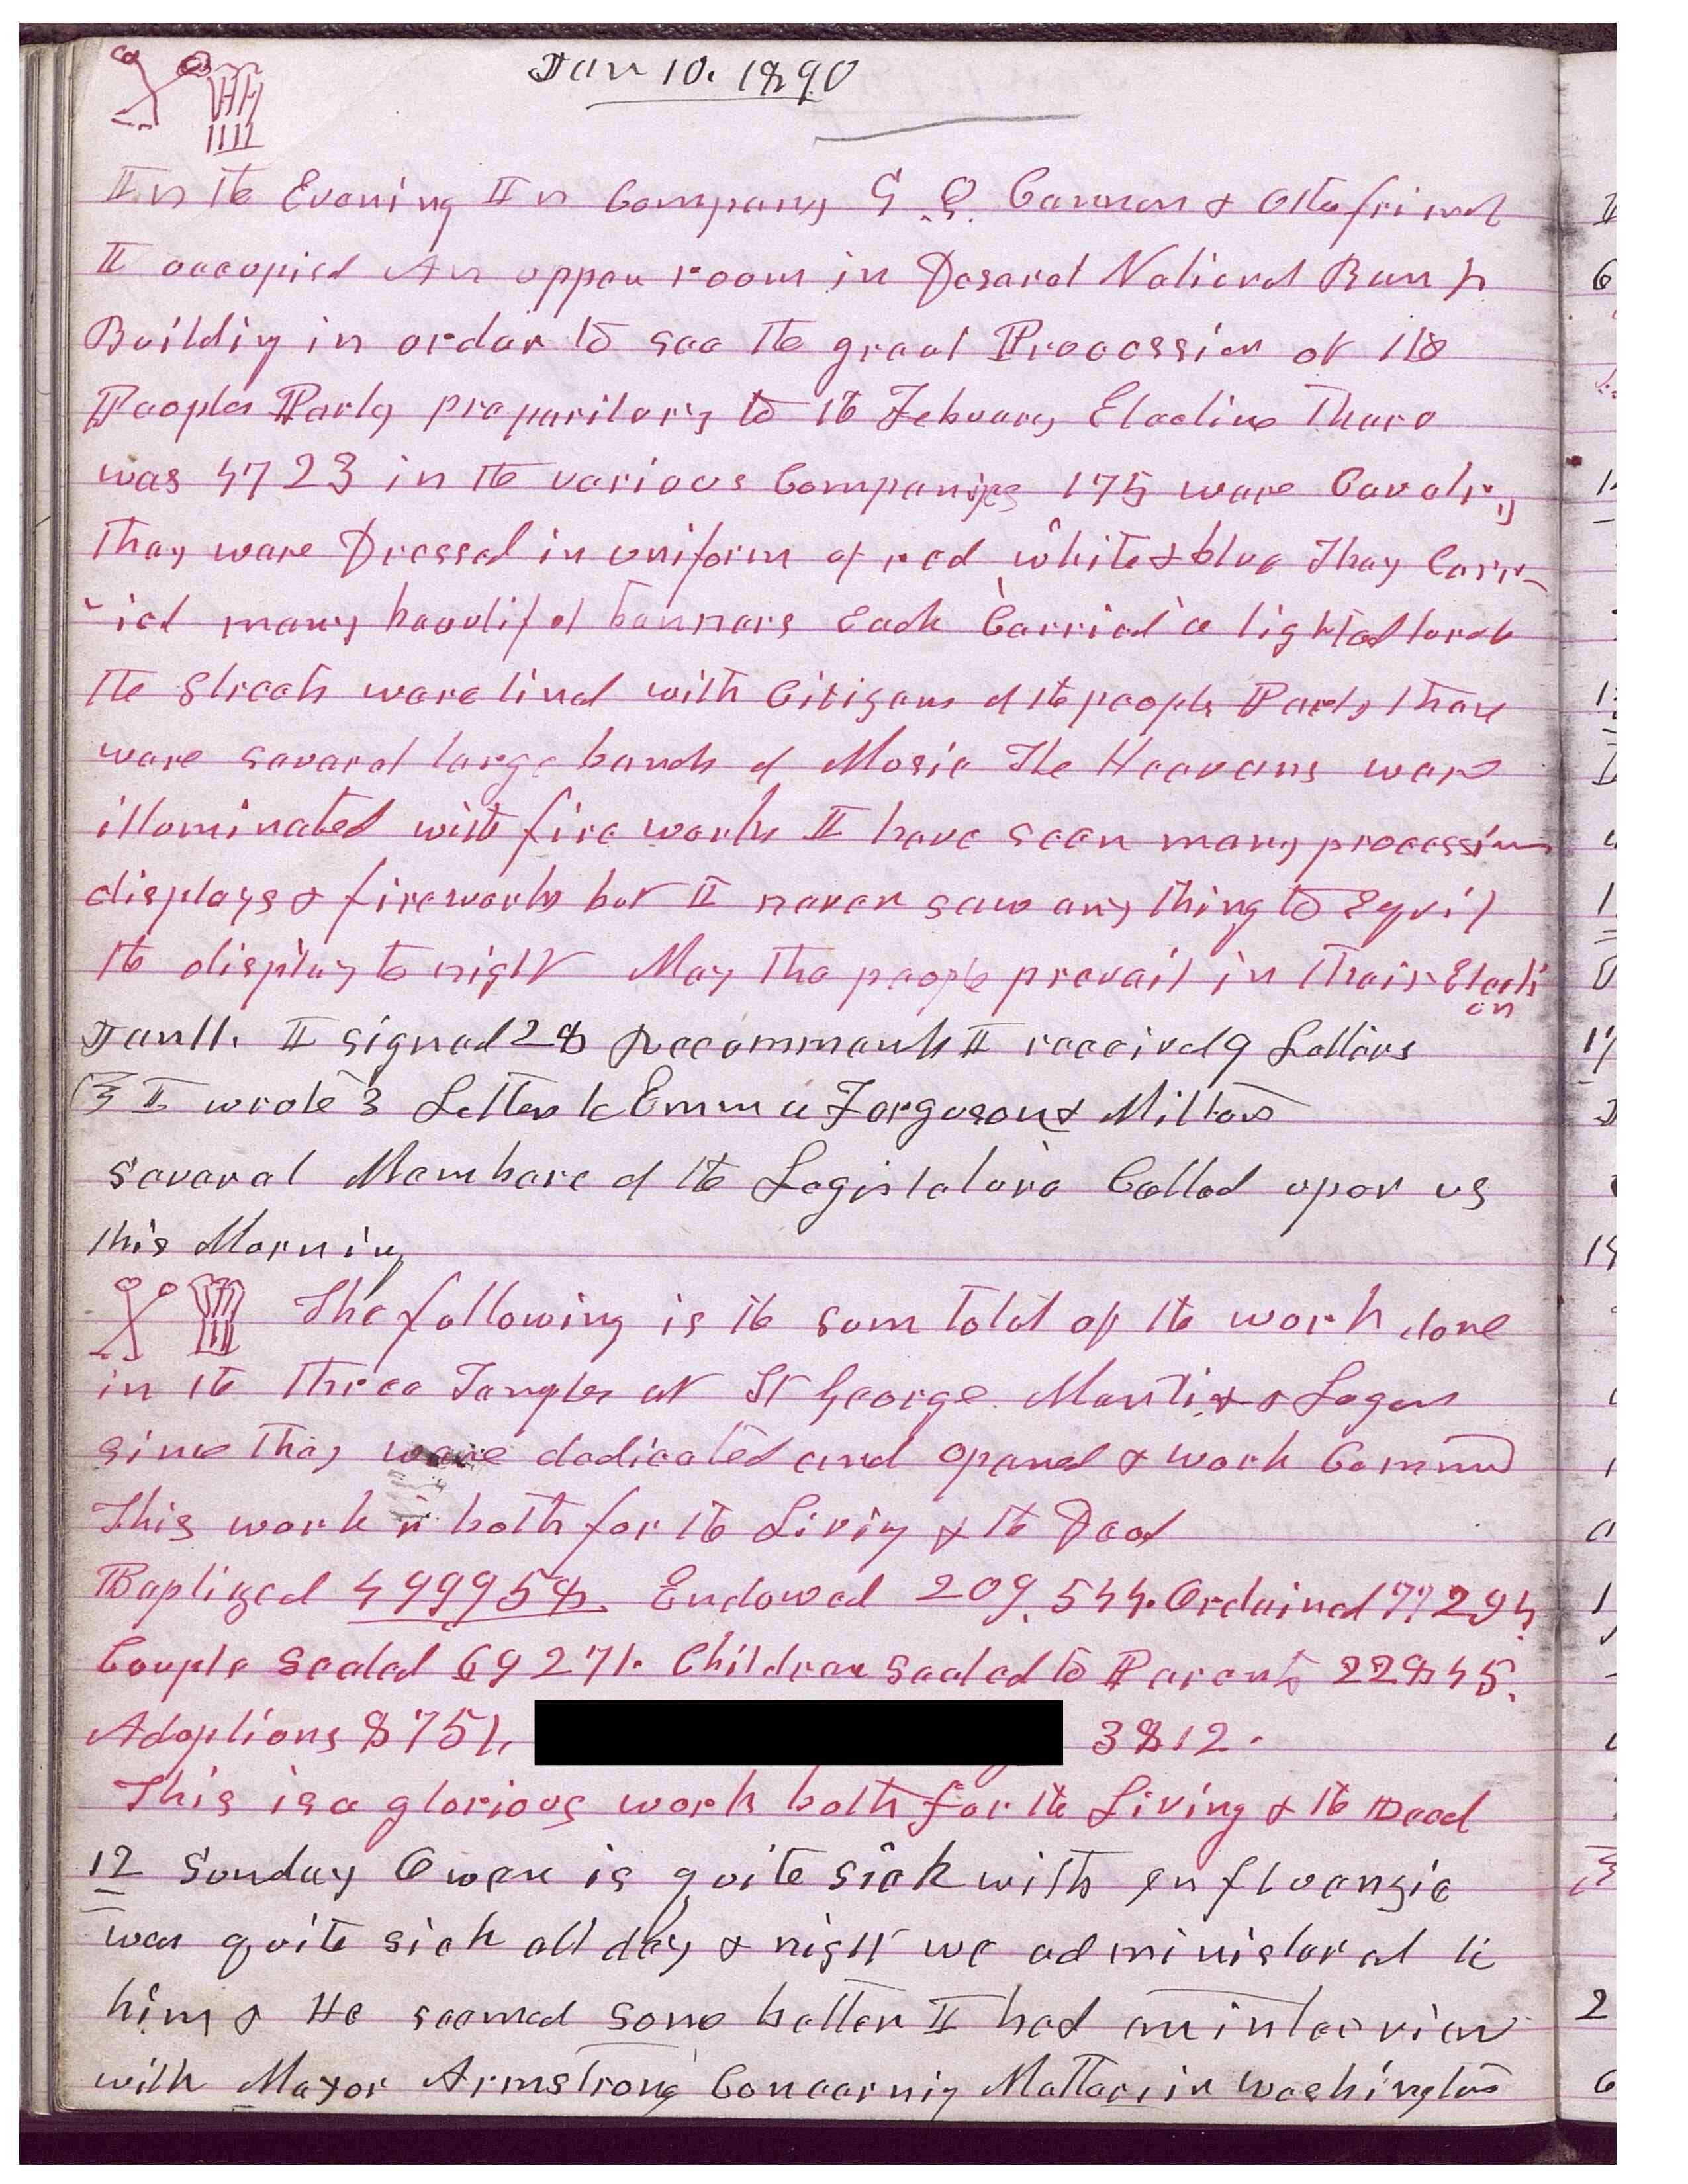 Jan 10. 1890
In the Evening In Company G Q Cannon & Other friends
I occupied An upper room in Deseret National Bank
Building in order to see the great Procession of the
Peoples Party preparitory to the Febuary Election There
was 4723 in the various Companies 175 were Cavalry
They were Dressed in uniform of red white & blue They Carr-
-ied many beautiful banners Each Carried a lighted torch
the Streets were lined with Citizens of the people Party there
were several large bands of Music The Heavens were
illuminated with fire works I have seen many processions
displays & fireworks but I never saw any thing to Equil
the display to night May the people prevail in their Electi
on
Jan 11. I signed 28 Recommends I received 9 Letters
I wrote 3 Letters to Emma Ferguson &
Several Members of the Legislature Called upon us
this Morning
The following is the sum total of the work done
in the three Temples at St George Manti & Logan
since they were dedicated and opened & work Commed
This work is both for the Living & the Dead
Baptized 499958. Endowed 209.544. Ordained 77294.
Couple Sealed 69271. Children sealed to Parents 22845.
Adoptions 8751. 3812.
This is a glorious work both for the Living & the Dead
12 Sunday Owen is quite sick with enfluenzie
was quite sick all day & night we administered to
him & He seemed some better I had an interview
with Mayor Armstrong Concerning Matters in Washington